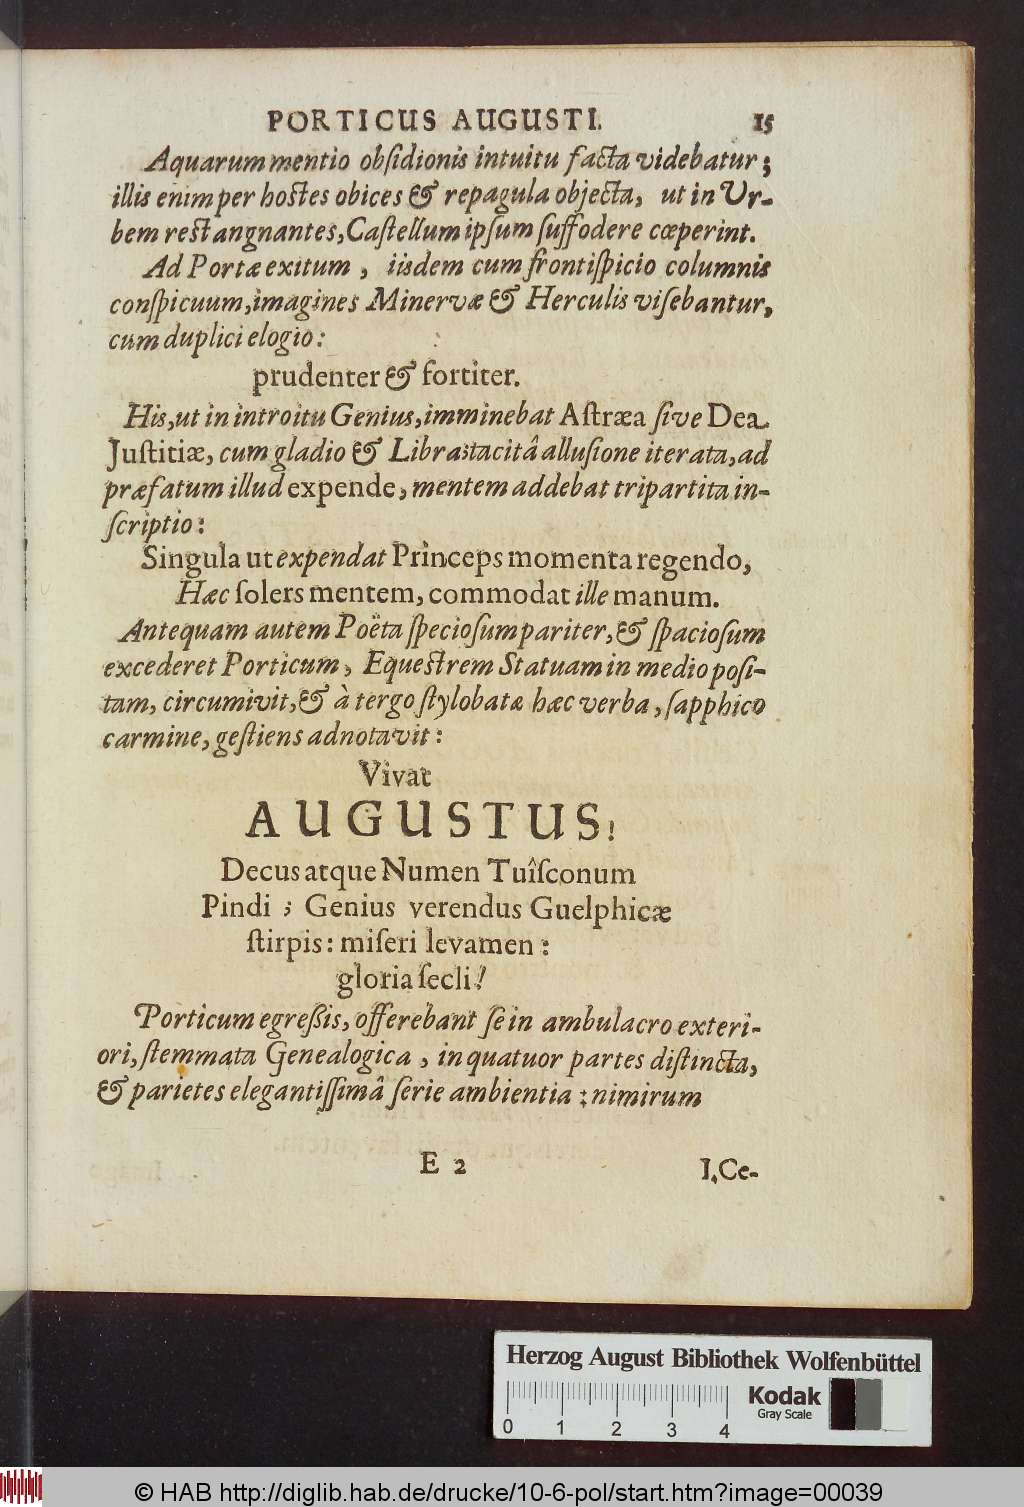 PORTICUS AUGUSTI. 15
Aquarum mentio obſidionis intuitu facta videbatur;
illis enim per hoſtes obices & repagula objecta, ut in Ur-
bem reſtangnantes, Caſtellum ipſum ſuffodere cœperint.
Ad Portæ exitum, iisdem cum frontiſpicio columnis
conſpicuum, imagines Minervæ & Herculis viſebantur,
cum duplici elogio:
prudenter & fortiter.
His, ut in introitu Genius, imminebat Aſtræa ſive Dea
Juſtitiæ, cum gladio & Libra; tacitâ alluſione iterata, ad
præfatum illud expende, mentem addebat tripartita in-
ſcriptio:
Singula ut expendat Princeps momenta regendo,
Hæc ſolers mentem, commodat ille manum.
Antequam autem Poëta ſpecioſum pariter, & ſpacioſum
excederet Porticum, Equeſtrem Statuam in medio poſi-
tam, circumivit, & à tergo ſtylobatæ hæc verba, ſapphico
carmine, geſtiens adnotavit:
Vivat
AUGUSTUS!
Decus atque Numen Tuîſconum
Pindi; Genius verendus Guelphicæ
ſtirpis: miſeri levamen:
gloria ſecli!
Porticum egreßis, offerebant ſe in ambulacro exteri-
ori, ſtemmata Genealogica, in quatuor partes diſtincta,
& parietes elegantiſſimâ ſerie ambientia: nimirum
E 2 I. Ce-
Herzog August Bibliothek Wolfenbüttel
Kodak
Gray Scale
0 1 2 3 4
© HAB http://diglib.hab.de/drucke/10-6-pol/start.htm?image=00039